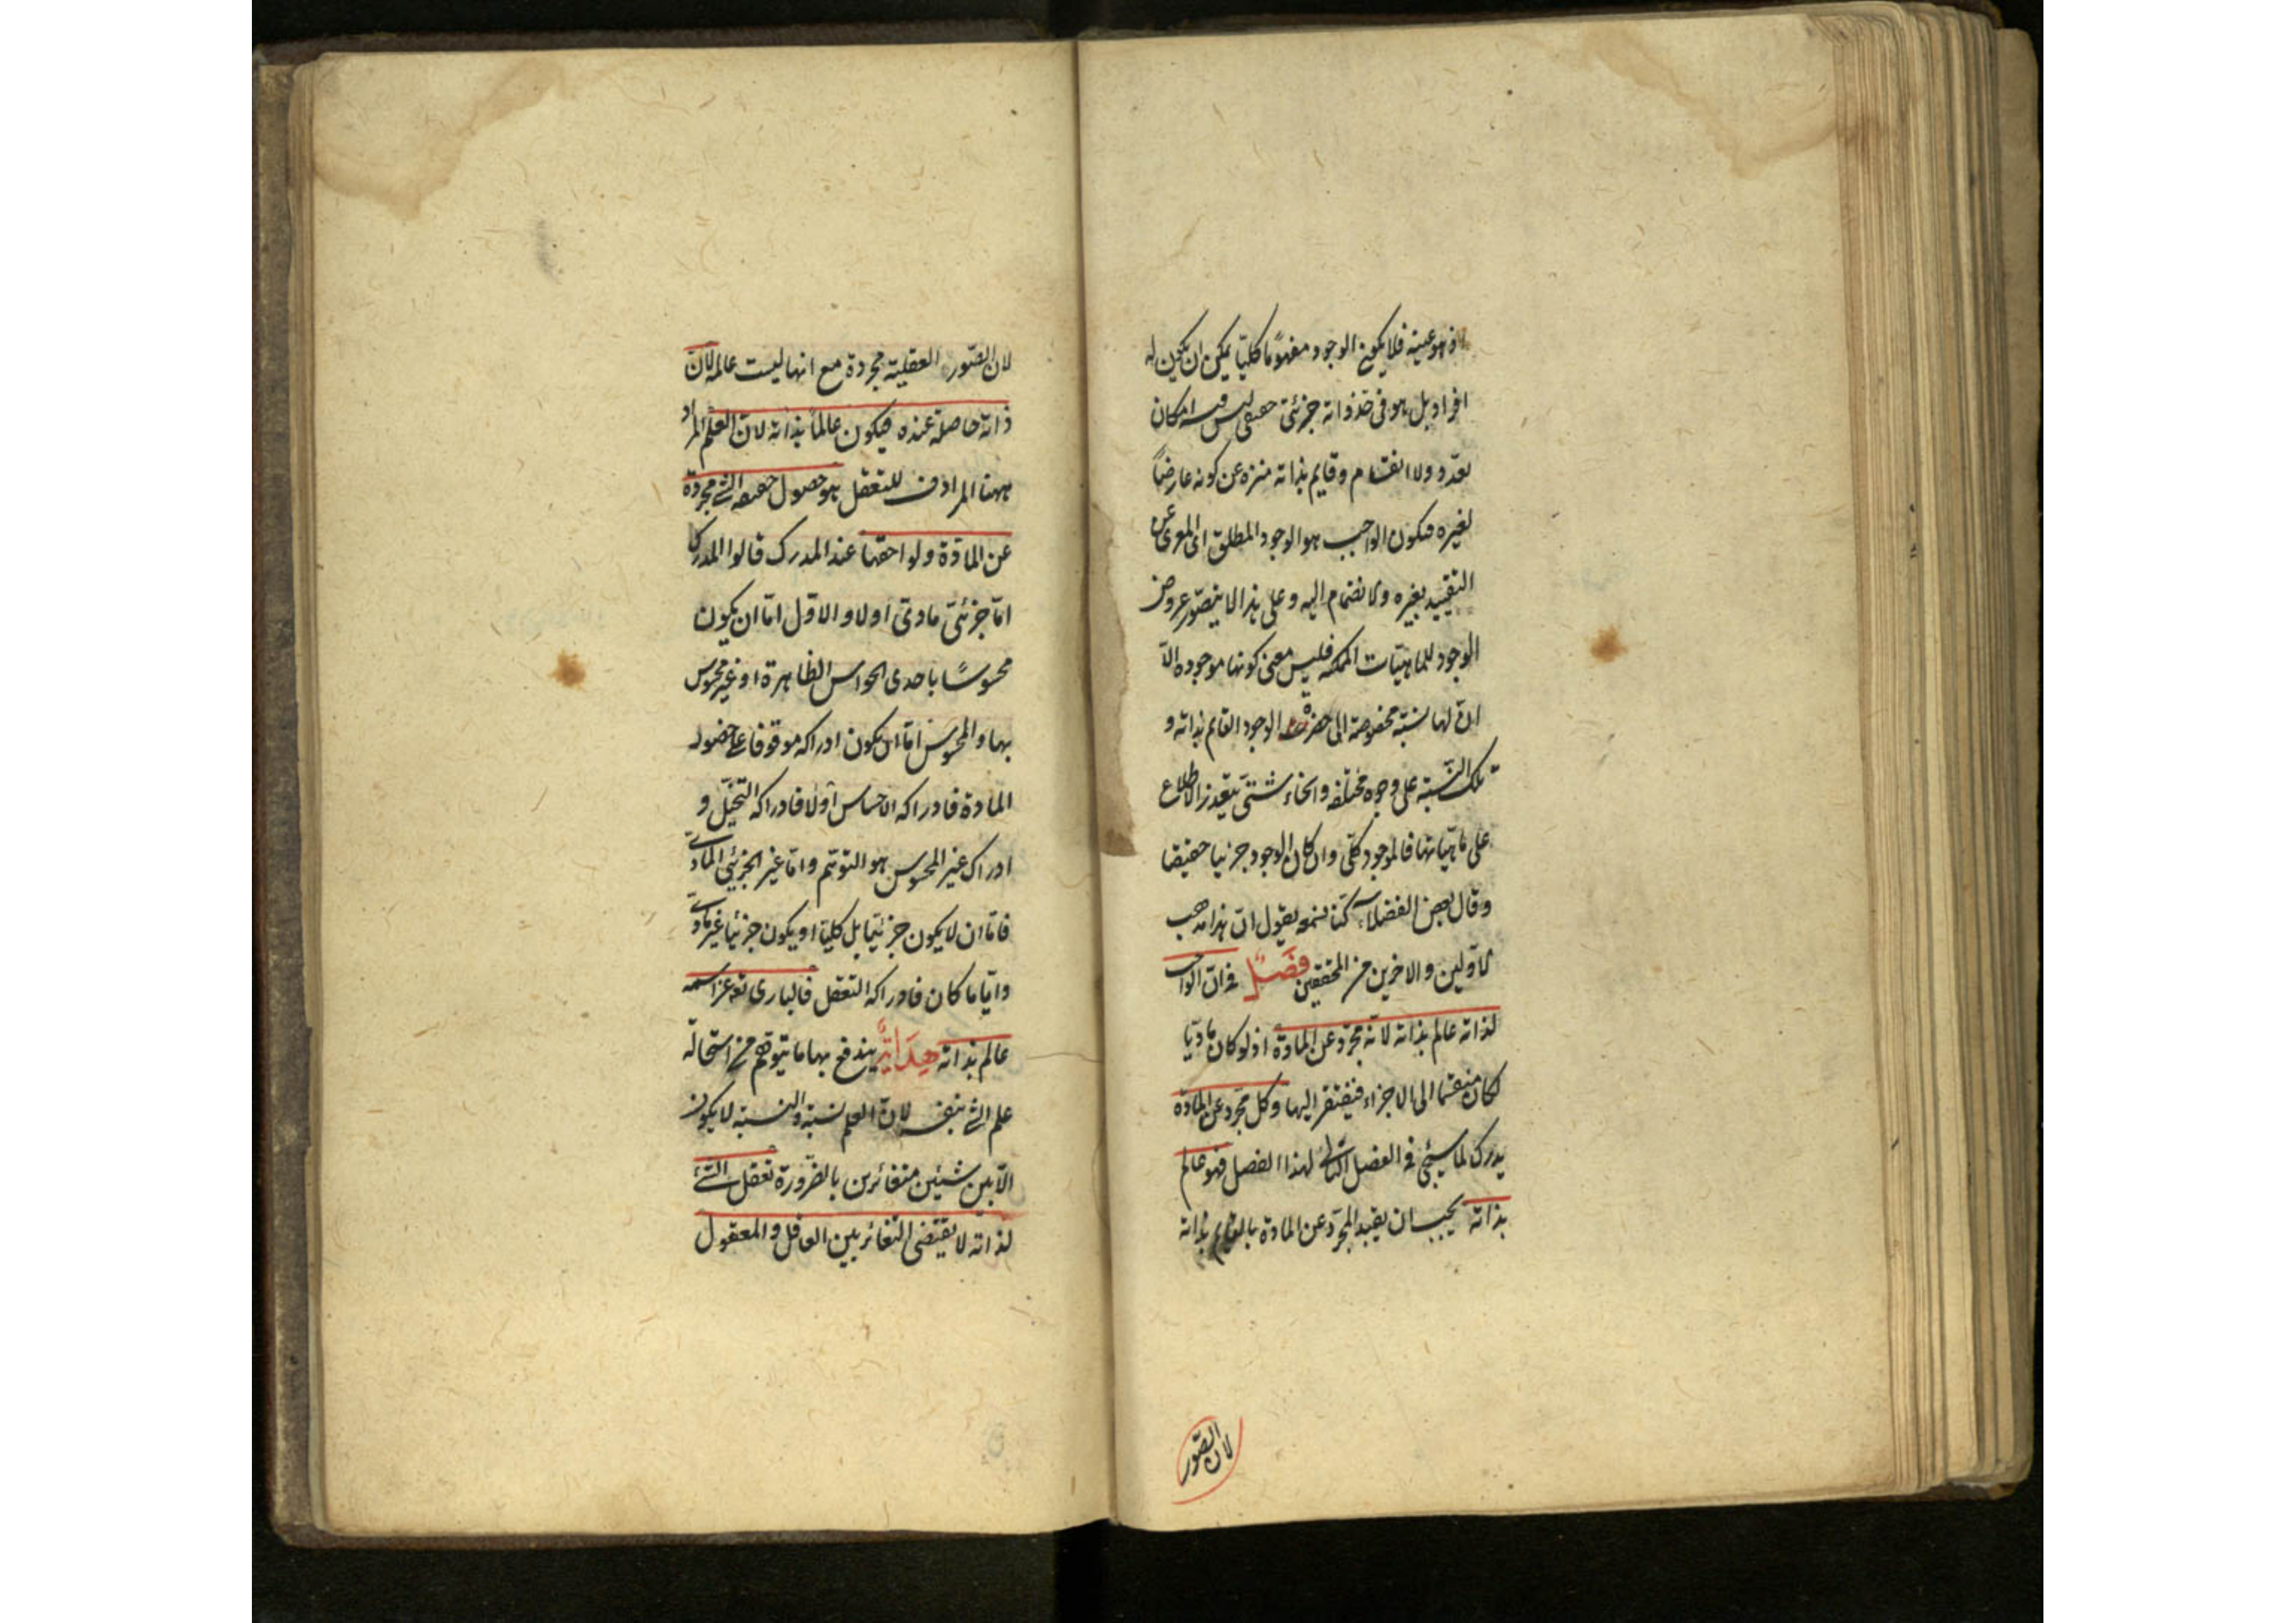 فهو عينه فلا يكون الوجود مفهومًا كليّا يمكن ان يكون له
افراد بل هو فى حد ذواته جزئىّ حقيقى ليس فيه امكان
تعدّد ولا انقسام وقايم بذاته منزه عن كونه عارضاً
لغيره فيكون الواجب هو الوجود المطلق اى المعرى عن
التقييد بغيره والانضمام اليه وعلى هذا لا يتصوّر عروض
الوجود للماهيّات الممكنه فليس معنى كونها موجوده الاّ
ان لها نسبة مخصوصة الى حضرت الوجود القايم بذاته و
تلك النّسبة على وجوه مختلفه وانحاء شتىّ يتعذر الاطلاع
على ماهيّاتها فالموجود كلّى وان كان الوجود جزئيا حقيقيا
وقال بعض الفضلاء كنّا نسمعه يقول انّ هذا مذهب
الاولين والاخرين من المحققين فصل فى انّ الواجب
لذاته عالم بذاته لانّه مجرّد عن المادة اذ لو كان ماديّا
لكان منقسما الى الاجزاء فيفتقر اليها وكل مجرّد عن المادة
يدرك لما سيجئ فى الفصل التالى لهذا الفصل فهو عالم
بذاته يجب ان يقيد المجرّد عن المادة بالقايم بذاته
لان الصّور
لان الصّور العقليّه مجردة مع انها ليست عالمه لانّ
ذاته حاصلة عنده فيكون عالماً بذاته لانّ العلم المراد
ههنا المرادف للتعقل هو حصول حقيقه الشئ مجردة
عن المادّة ولواحقها عند المدرك قالوا المدرك
امّا جزئىّ مادىّ اولا والاوّل امّا ان يكون
محسوسًا باحدى الحواس الظاهرة او غير محسوس
بها والمحسوس امّا ان يكون ادراكه موقوفا على حضوله
المادة فادراكه الاحساس اولا فادراكه التخيّل و
ادراك غير المحسوس هو التوهّم وامّا غير الجزئى المادىّ
فامّا ان لا يكون جزئيّا بل كليّا او يكون جزئيا غير مادىّ
وايّاما كان فادراكه التعقل فالبارى تع عزّ اسمه
عالم بذاته هداية يندفع بها ما يتوهّم من استحاله
علم الشئ بنفسه لانّ العلم نسبة والنسبة لا يكون
الاّ بين شيئين متغائرين بالضّرورة تعقل الشّئ
لذاته لا يقتضى التغائر بين العاقل والمعقول